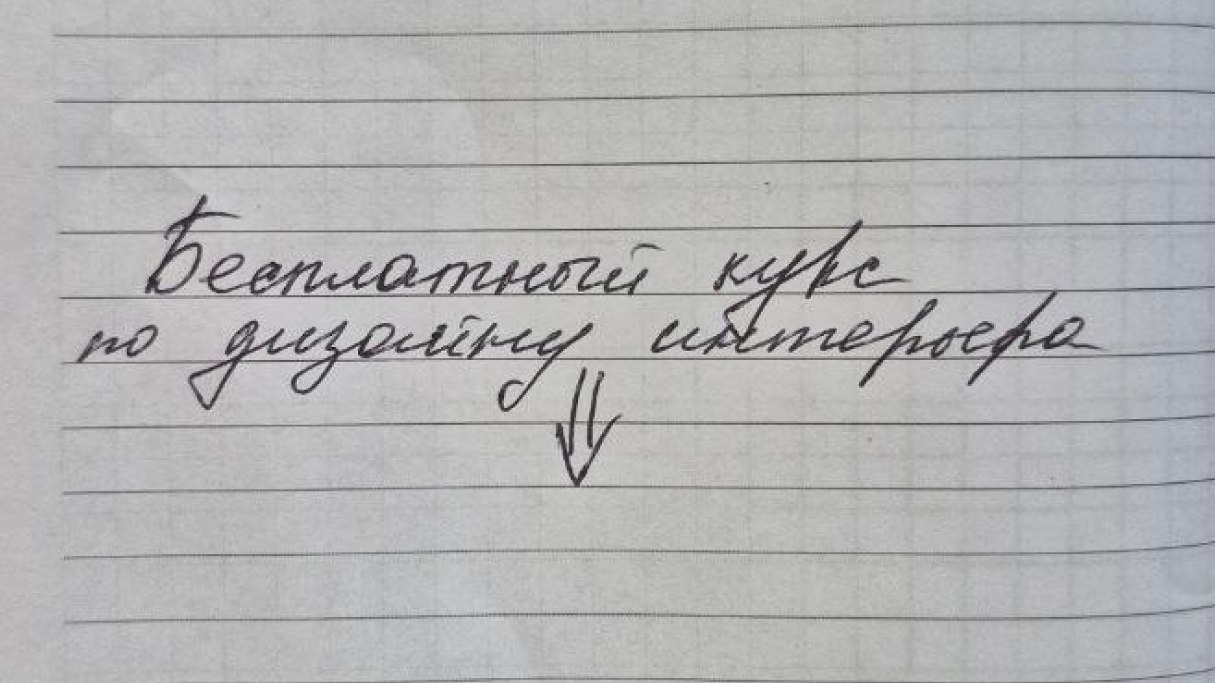 Бесплатный курс
по дизайну интерьера